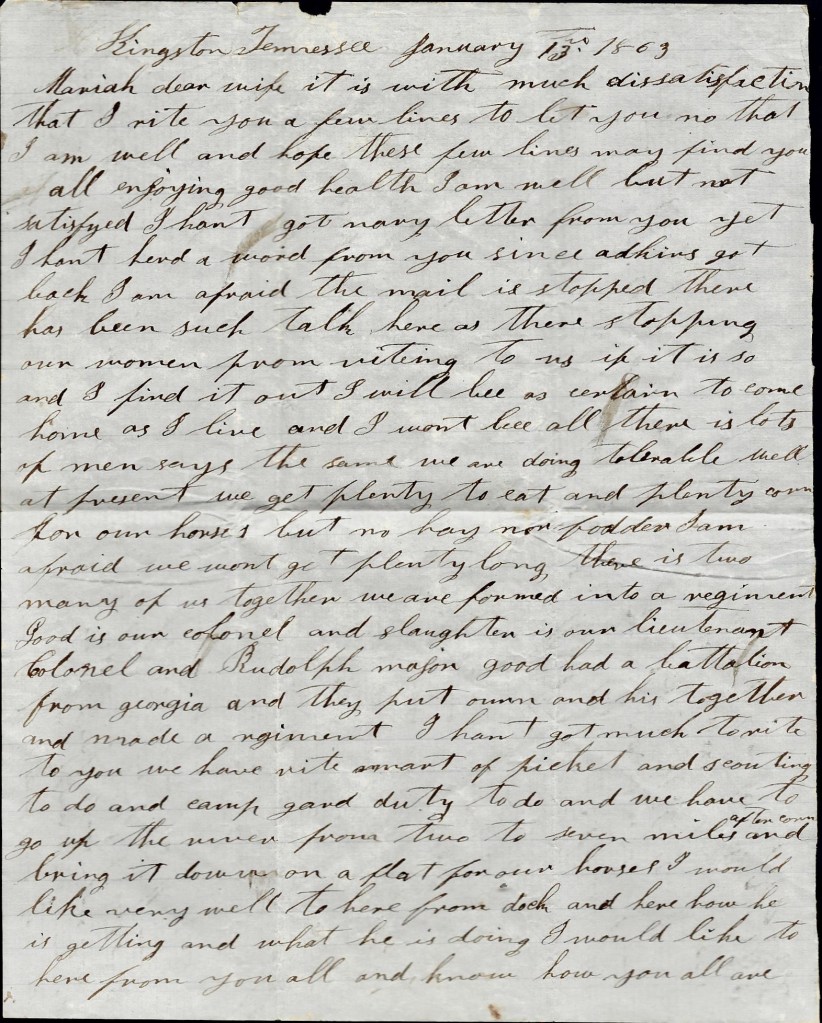 Kingston Tennessee January 13th 1863
Mariah dear wife it is with much dissatisfaction
that I rite you a few lines to let you no that
I am well and hope these few lines may find you
all enjoying good health I am well but not
satisfyed I hant got nary letter from you yet
I hant herd a word from you since adkins got
back I am afraid the mail is stopped there
has been such talk here as there stopping
our women from riteing to us if it is so
and I find it out I will bee as certain to come
home as I live and I wont bee all there is lots
of men says the same we are doing tolerable well
at present we get plenty to eat and plenty corn
for our horses but no hay nor fodder I am
afraid we wont get plenty long there is two
many of us together we are formed into a regiment
Good is our colonel and slaughter is our lieutenant
Colonel and Rudolph major good had a battalion
from georgia and they put ourn and his together
and made a rgiment I hant got much to rite
to you we have rite smart of picket and scouting
to do and camp gard duty to do and we have to
go up the river from two to seven miles after corn and
bring it down on a flat for our horses I would
like very well to here from dock and here how he
is getting and what he is doing I would like to
here from you all and know how you all are